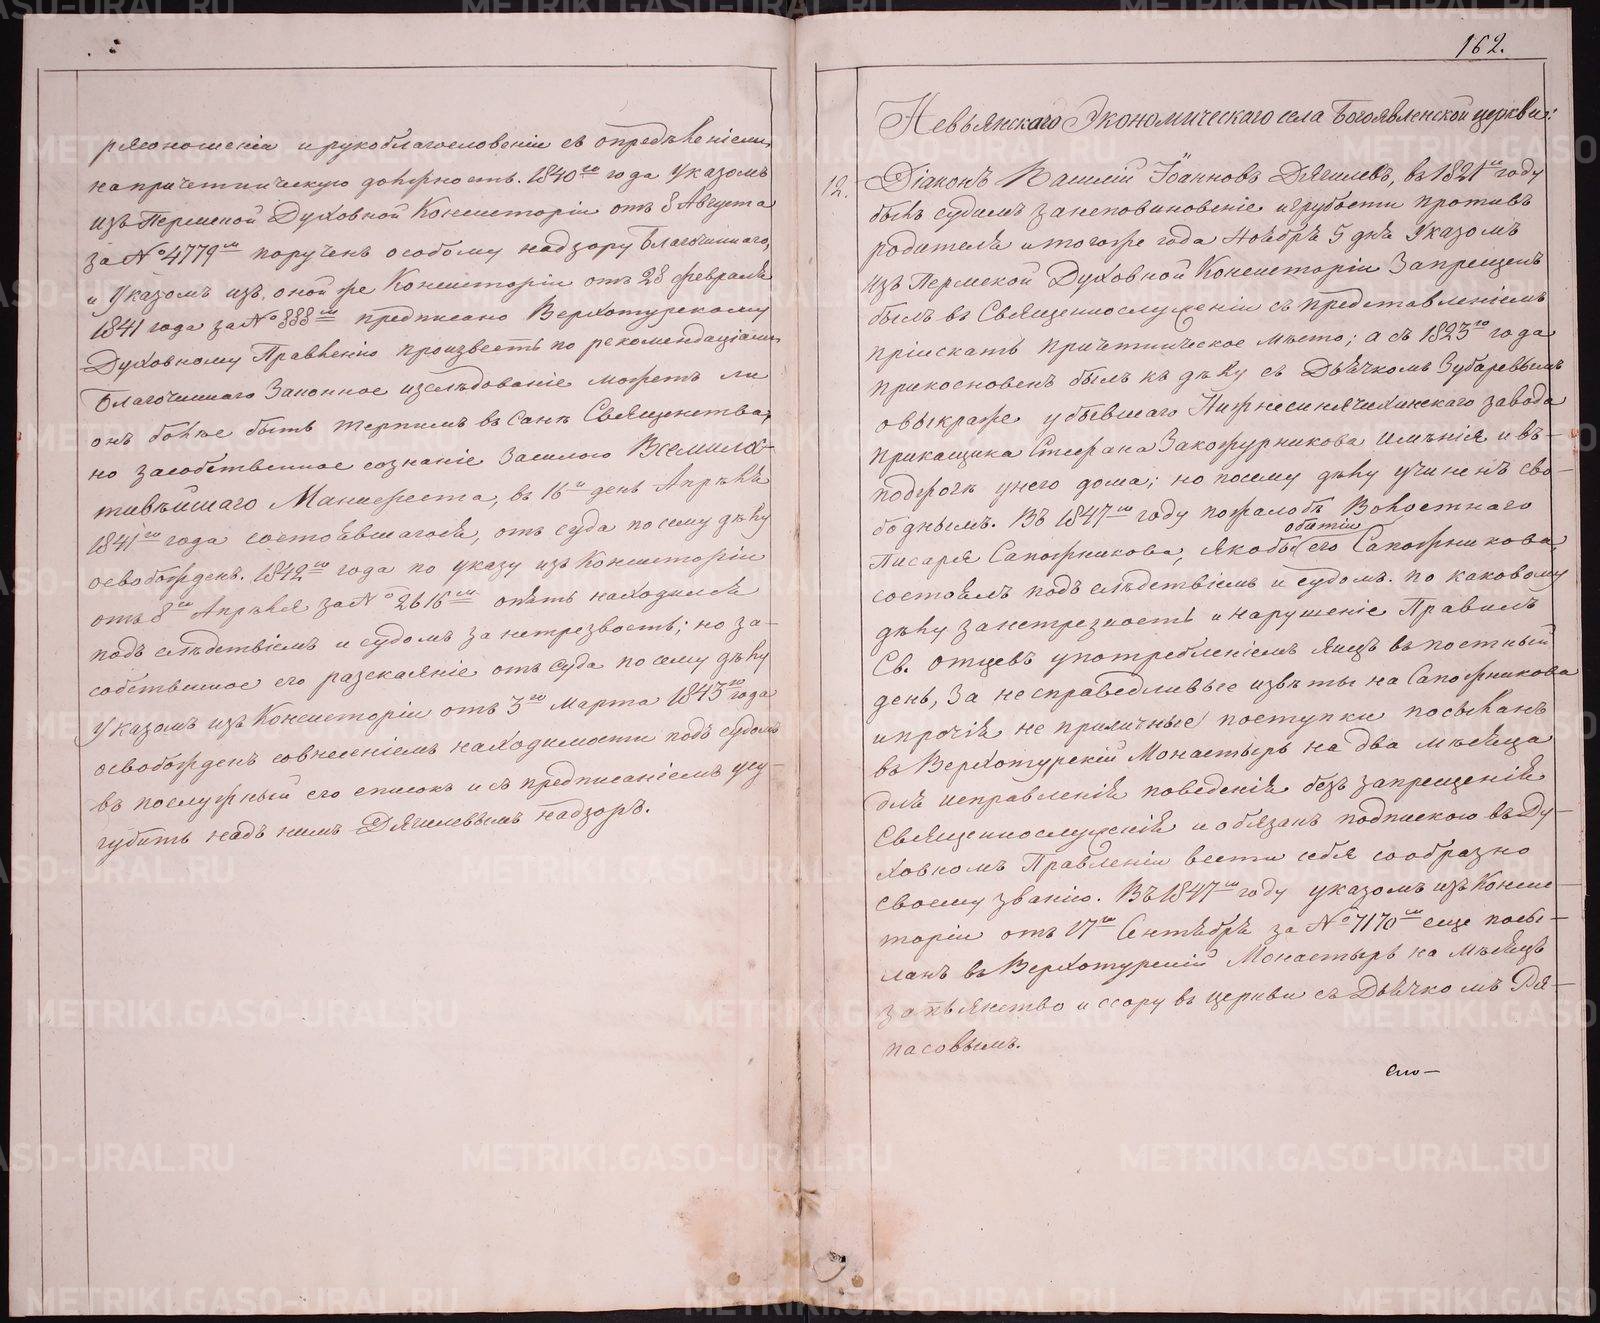 рясоношенія и рукоблагословенія съ опредѣленіемъ
на причетническую должность. 1840го года Указомъ
изъ Пермской Духовной Консисторіи отъ 8 Августа
за №4779мъ порученъ особому надзору Благочиннаго,
и Указомъ изъ оной же Консисторіи отъ 28 февраля
1841 года за №888мъ предписано Верхотурскому
Духовному Правленію произвесть по рекомендаціямъ
Благочиннаго Законное изслѣдованіе можетъ ли
онъ болѣе быть терпимъ въ санѣ Священства,
но за собственное сознаніе за силою Всемилос-
тивѣйшаго Манифеста, въ 16й день Апрѣля
1841го года состоявшагося, отъ суда по сему дѣлу
освобожденъ. 1842го года по указу изъ Консисторіи
отъ 8го Апрѣля за №2616мъ опять находился
подъ слѣдствіемъ и судомъ за нетрезвость; но за-
собственное его раскаяніе отъ суда по сему дѣлу
Указомъ изъ Консисторіи отъ 3го Марта 1843го года
освобожденъ со внесеніемъ находимости подъ судомъ
въ послужный его списокъ и съ предписаніемъ усу-
губить надъ нимъ Дягилевымъ надзоръ.
162.
Невьянскаго Экономическаго села Богоявленской церкви:
12. Діаконъ Василій Іоанновъ Дягилевъ, въ 1821мъ году
былъ судимъ за неповиновеніе и грубости противъ
родителя и того же года Ноября 5 дня Указомъ
изъ Пермской Духовной Консисторіи Запрещенъ
былъ въ Священнослуженіи съ представленіемъ
пріискать причетническое мѣсто; а съ 1823го года
прикосновенъ былъ къ дѣлу съ Дьячкомъ Зубаревымъ
о выкраже у бывшаго Нижнесинячихинскаго завода
прикащика Стефана Закожурникова имѣнія и въ-
поджогѣ у него дома; но по сему дѣлу учиненъ сво-
боднымъ. Въ 1847мъ году по жалобѣ Волостнаго
Писаря Сапожникова, якобы о битіи его Сапожникова,
состоялъ подъ слѣдствіемъ и судомъ. по каковому
дѣлу за нетрезвость и нарушеніе Правилъ
Св. отцевъ употребленіемъ яицъ въ постный
день, За несправедливые извѣты на Сапожникова
и прочія не приличные поступки посыланъ
въ Верхотурскій Монастырь на два мѣсяца
для исправленія поведенія безъ запрещенія
Священнослуженія и обязанъ подпискою въ Ду-
ховномъ Правленіи вести себя сообразно
своему званію. Въ 1847мъ году указомъ изъ Консис-
торіи отъ 17го Сентября за №7170мъ еще посы-
ланъ въ Верхотурскій Монастырь на мѣсяцъ
за пьянство и ссору въ церкви съ Дьячкомъ Ря-
пасовымъ.
METRIKI.GASO-URAL.RU